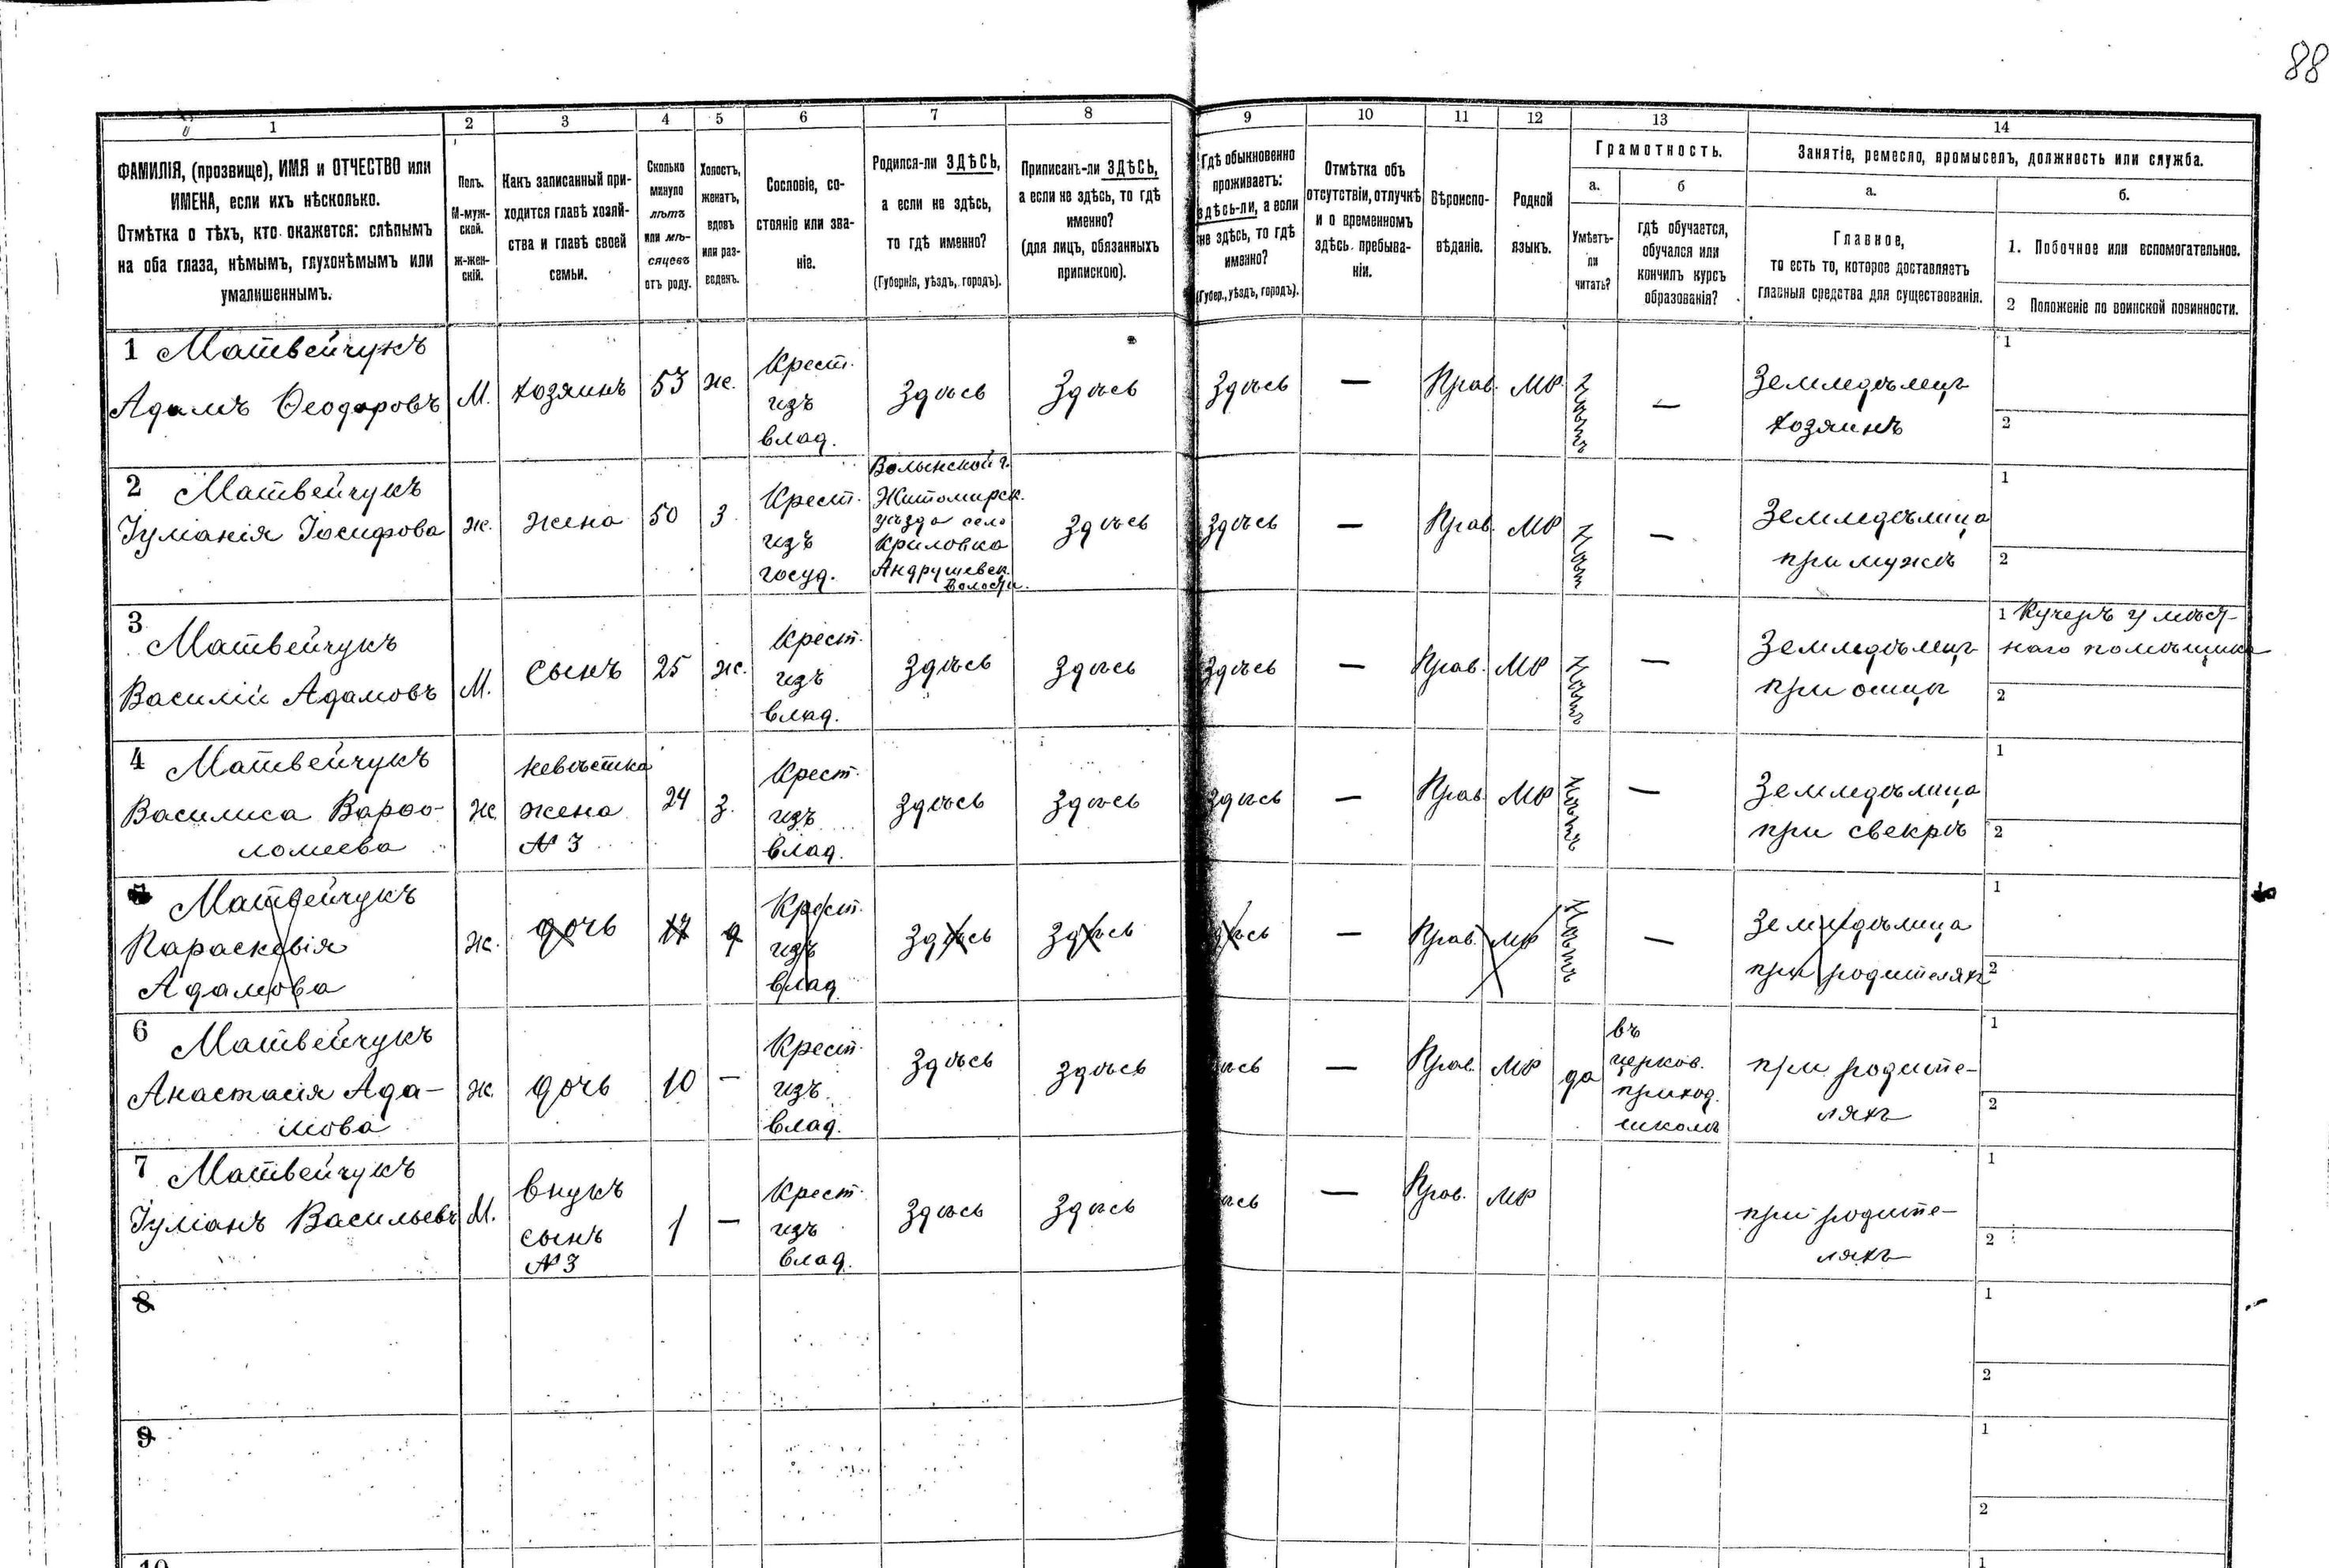 88
1 2 3 4 5 6 7 8 9 10 11 12 13 14
ФАМИЛІЯ, (прозвище), ИМЯ и ОТЧЕСТВО или
ИМЕНА, если ихъ нѣсколько.
Отмѣтка о тѣхъ, кто окажется: слѣпымъ
на оба глаза, нѣмымъ, глухонѣмымъ или
умалишеннымъ.
Полъ.
М-муж-
ской.
ж-жен-
скій.
Какъ записанный при-
ходится главѣ хозяй-
ства и главѣ своей
семьи.
Сколько
минуло
лѣтъ
или мѣ-
сяцевъ
отъ роду.
Холостъ,
женатъ,
вдовъ
или раз-
веденъ.
Сословіе, со-
стояніе или зва-
ніе.
Родился-ли ЗДѢСЬ,
а если не здѣсь,
то гдѣ именно?
(Губернія, уѣздъ, городъ).
Приписанъ-ли ЗДѢСЬ,
а если не здѣсь, то гдѣ
именно?
(для лицъ, обязанныхъ
припискою).
Гдѣ обыкновенно
проживаетъ:
здѣсь-ли, а если
не здѣсь, то гдѣ
именно?
(Губер., уѣздъ, городъ).
Отмѣтка объ
отсутствіи, отлучкѣ
и о временномъ
здѣсь пребыва-
ніи.
Вѣроиспо-
вѣданіе.
Родной
языкъ.
Грамотность.
а.
Умѣетъ-
ли
читать?
б
гдѣ обучается,
обучался или
кончилъ курсъ
образованія?
Занятіе, ремесло, промыселъ, должность или служба.
а.
Главное,
то есть то, которое доставляетъ
главныя средства для существованія.
б.
1. Побочное или вспомогательное.
2 Положеніе по воинской повинности.
1 Матвейчукъ
Адамъ Ѳеодоровъ
М.
хозяинъ
53
ж.
Крест.
изъ
влад.
Здѣсь
Здѣсь
Здѣсь
—
Прав.
МР
—
Земледѣлецъ
хозяинъ
1
2
2 Матвейчукъ
Іуліанія Іосифова
ж.
жена
50
з
Крест.
изъ
госуд.
Волынской г.
Житомирск.
уѣзда село
Криловка
Андрушевск.
Волости.
Здѣсь
Здѣсь
—
Прав.
МР
—
Земледѣлица
при мужѣ
1
2
3
Матвейчукъ
Василій Адамовъ
М.
сынъ
25
ж.
Крест.
изъ
влад.
Здѣсь
Здѣсь
Здѣсь
—
Прав.
МР
—
Земледѣлецъ
при отцѣ
1 Кучеръ у мѣст-
наго помѣщика
2
4 Матвейчукъ
Василиса Варѳо-
ломеева
ж.
невѣстка
жена
№ 3
24
з.
Крест.
изъ
влад.
Здѣсь
Здѣсь
Здѣсь
—
Прав.
МР
—
Земледѣлица
при свекрѣ
1
2
Матвейчукъ
Параскевія
Адамова
ж.
дочь
17
д
Крест.
изъ
влад.
Здѣсь
Здѣсь
Здѣсь
—
Прав.
МР
—
Земледѣлица
при родителяхъ
1
2
6 Матвейчукъ
Анастасія Ада-
мова
ж.
дочь
10
—
Крест.
изъ
влад.
Здѣсь
Здѣсь
ѣсь
—
Прав.
МР
да
въ
церков.
приход.
школѣ
при родите-
ляхъ
1
2
7 Матвейчукъ
Іуліанъ Васильевъ
М.
внукъ
сынъ
№ 3
1
—
Крест.
изъ
влад.
Здѣсь
Здѣсь
ѣсь
—
Прав.
МР
при родите-
ляхъ
1
2
8
1
2
9
1
2
10
1